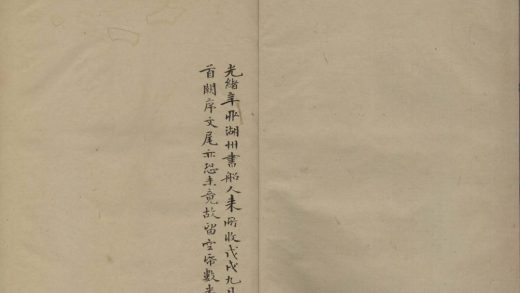 光緒辛卯湖州書船人来所收戊戌九月
首闕序文尾亦恐未竟故留空帋數